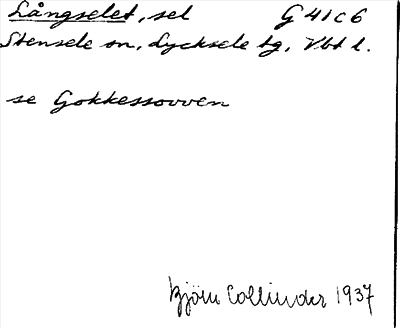 Långselet, sel G 41 c 6
Stensele sn, Lycksele tg, Vbt l.
se Gokkessovven
Björn Collinder 1937